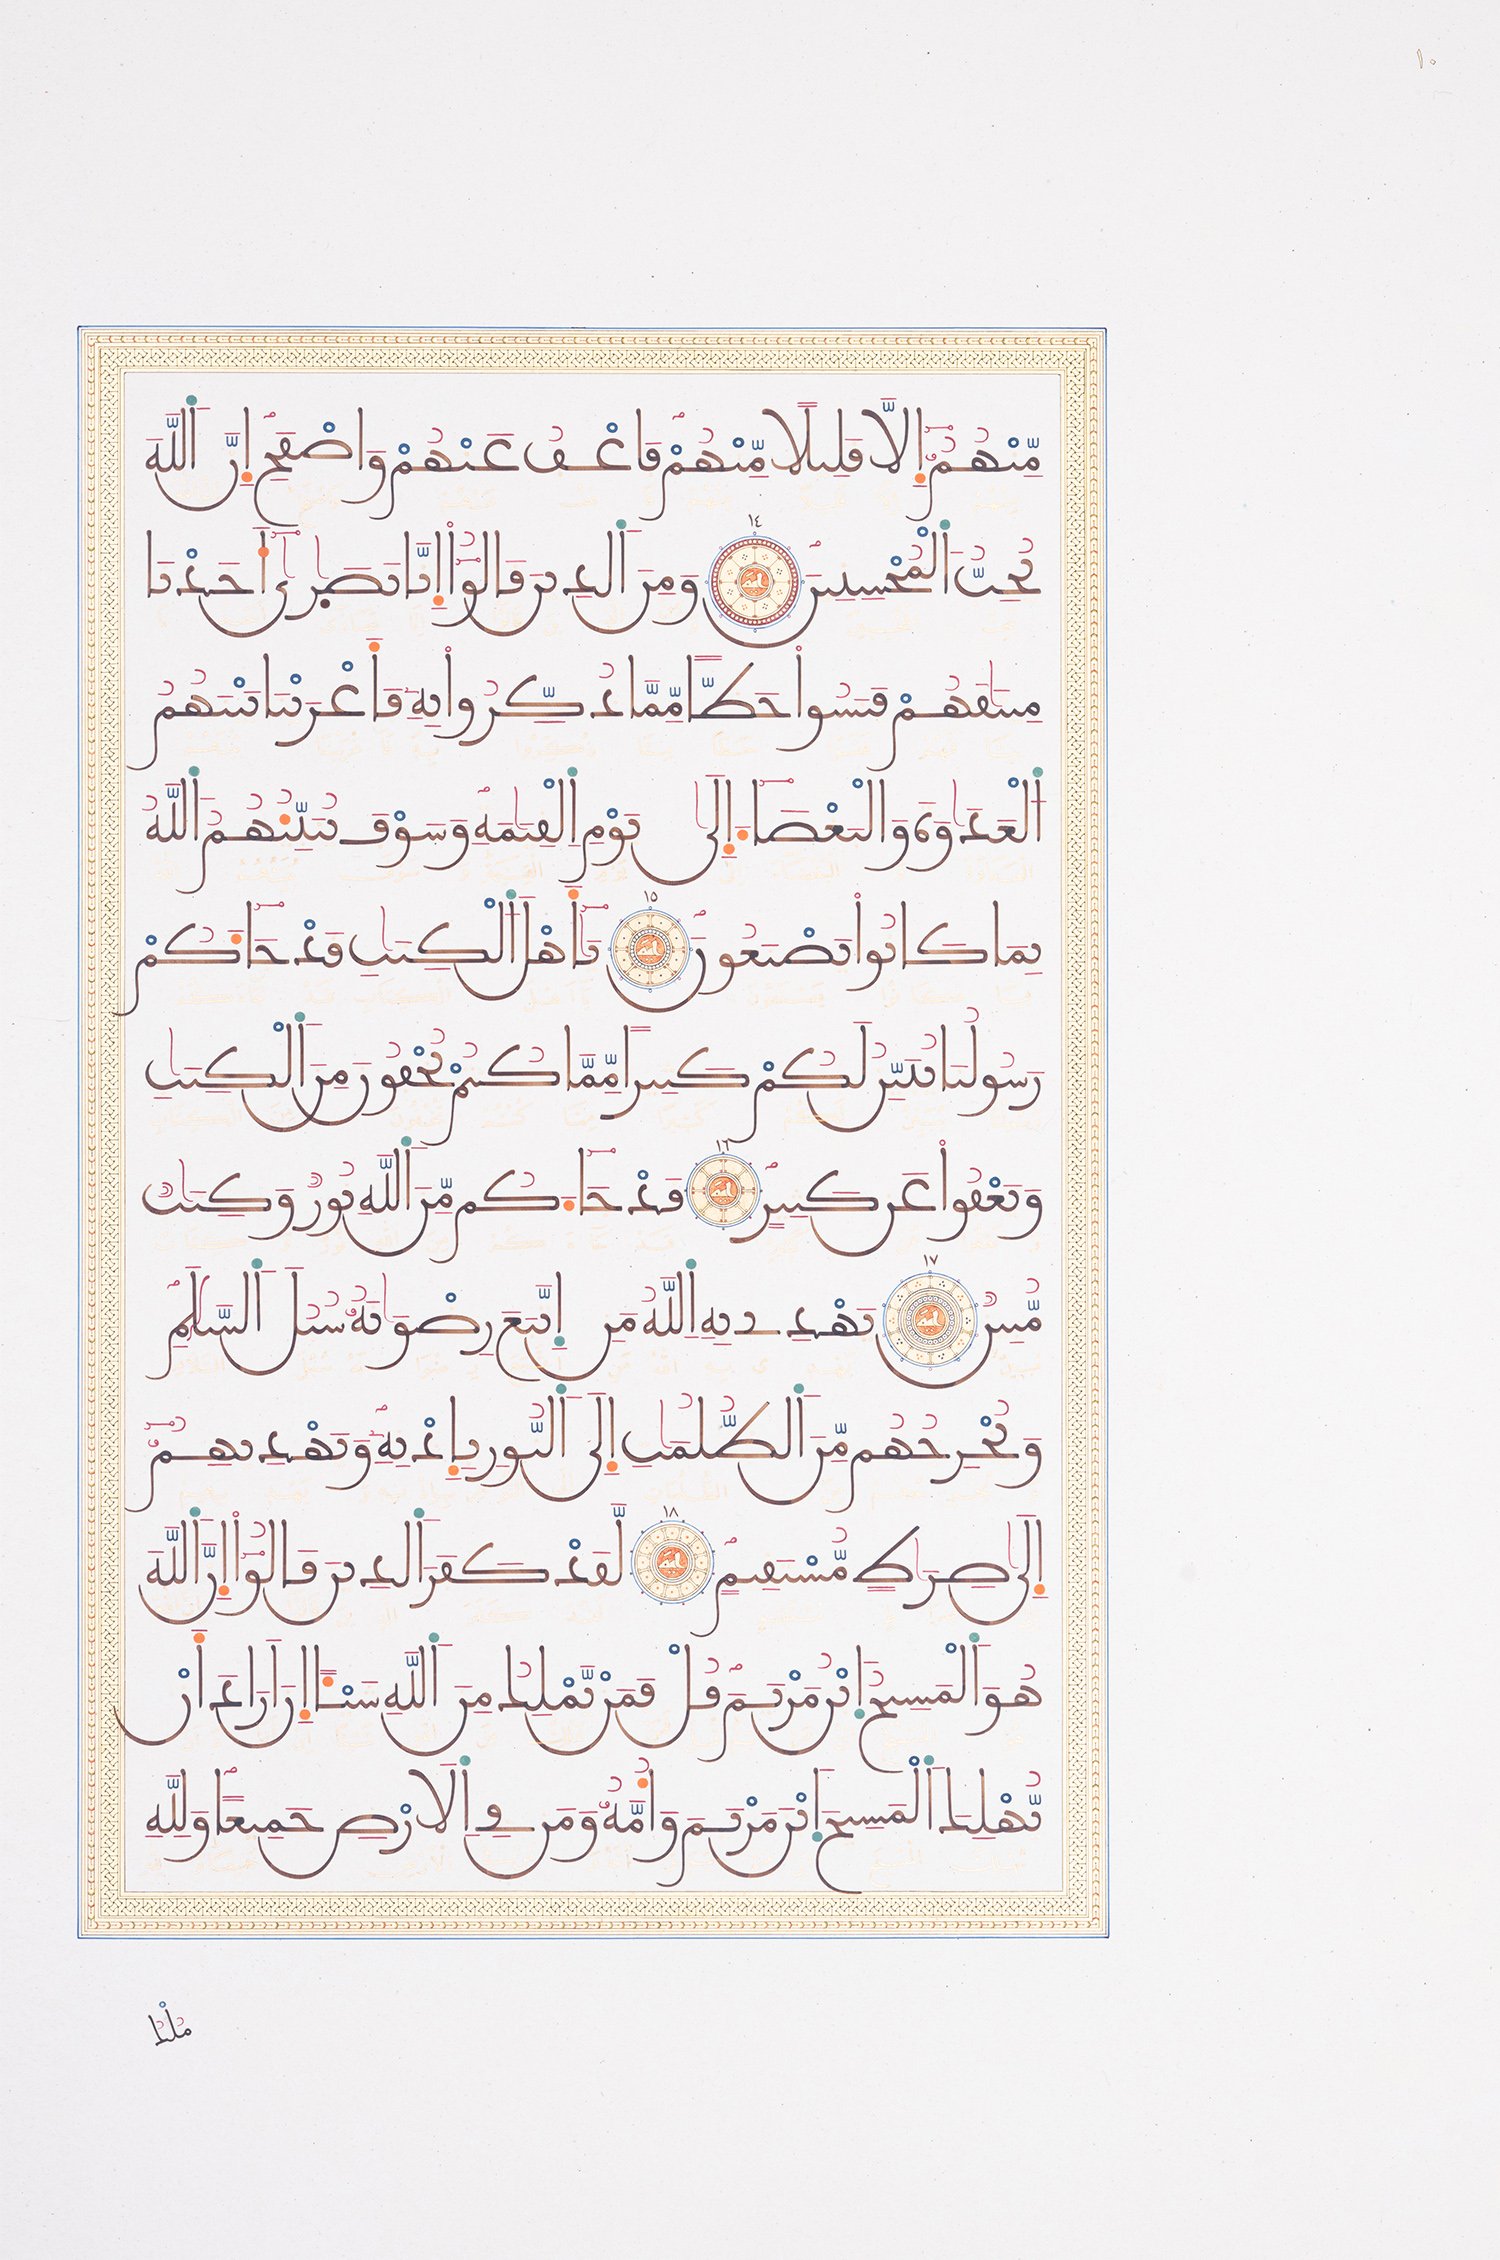 ١٠
مِّنْهُمُۥٓ إِلَّا قَلِيلًا مِّنْهُمْ فَاعْفُ عَنْهُمْ وَاصْفَحِ إِنَّ اَللَّهَ
يُحِبُّ اَلْمُحْسِنِينَ ١٤ وَمِنَ اَلذِينَ قَالُوٓاْ إِنَّا نَصَٰرِىٰٓ أَخَذْنَا
مِيثَٰقَهُمْ فَنَسُواْ حَظًّا مِّمَّا ذُكِّرُواْ بِهِۦ فَأَغْرَيْنَا بَيْنَهُمُ
اَلْعَدَٰوَةَ وَالْبَغْضَآءَ إِلَىٰ يَوْمِ اِلْقِيَٰمَةِ وَسَوْفَ يُنَبِّئُهُمُ اَللَّهُ
بِمَا كَانُواْ يَصْنَعُونَ ١٥ يَٰٓأَهْلَ اَلْكِتَٰبِ قَدْ جَآءَكُمْ
رَسُولُنَا يُبَيِّنُ لَكُمْ كَثِيرًا مِّمَّا كُنتُمْ تُخْفُونَ مِنَ اَلْكِتَٰبِ
وَيَعْفُواْ عَن كَثِيرٍ ١٦ قَدْ جَآءَكُم مِّنَ اَللَّهِ نُورٌ وَكِتَٰبٌ
مُّبِينٌ ١٧ يَهْدِے بِهِ اِللَّهُ مَنِ اِتَّبَعَ رِضْوَٰنَهُۥ سُبُلَ اَلسَّلَٰمِ
وَيُخْرِجُهُم مِّنَ اَلظُّلُمَٰتِ إِلَى اَلنُّورِ بِإِذْنِهِۦ وَيَهْدِيهِمُۥٓ
إِلَىٰ صِرَٰطٍ مُّسْتَقِيمٍ ١٨ لَّقَدْ كَفَرَ اَلذِينَ قَالُوٓاْ إِنَّ اَللَّهَ
هُوَ اَلْمَسِيحُ اُبْنُ مَرْيَمَ قُلْ فَمَنْ يَّمْلِكُ مِنَ اَللَّهِ شَيْـًٔا إِنَ اَرَادَ أَنْ
يُّهْلِكَ اَلْمَسِيحَ اَبْنَ مَرْيَمَ وَأُمَّهُۥ وَمَن فِے اِلَارْضِ جَمِيعًا وَلِلَّهِ
مُلْكُ